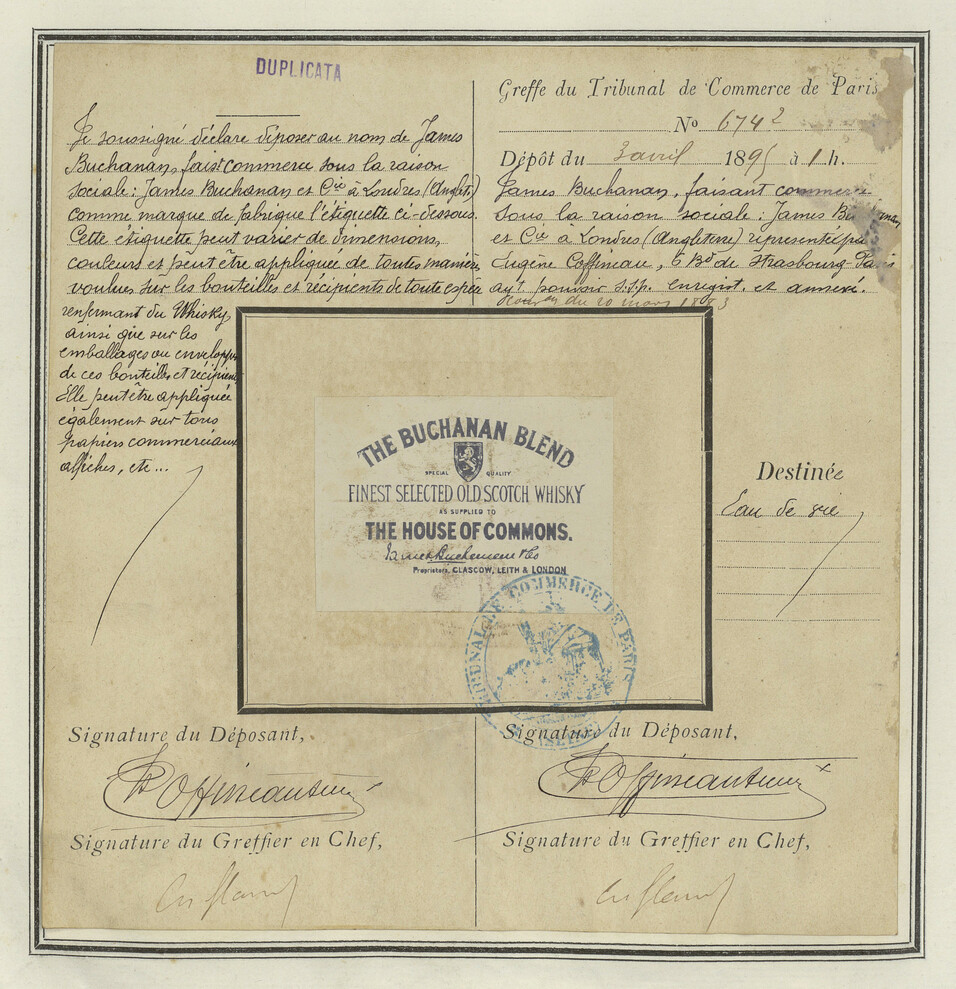 DUPLICATA
Je soussigné déclare déposer au nom de James
Buchanan, fais.t commerce sous la raison
sociale: James Buchanan et Cie à Londres (Anglet.)
comme marque de fabrique l'étiquette ci-dessous.
Cette étiquette peut varier de dimensions,
couleurs et peut être appliquée de toutes manières
voulues sur les bouteilles et récipients de toute espèce
renfermant du Whisky,
ainsi que sur les
emballages ou enveloppes
de ces bouteilles et récipients
Elle peut être appliquée
également sur tous
papiers commerciaux,
affiches, etc...
Greffe du Tribunal de Commerce de Paris
No 6742
Dépôt du 3 avril 1895 à 1 h.
James Buchanan, faisant commerce
sous la raison sociale: James
et Cie à Londres (Angleterre) représentée par
Eugène Coffineau, 6 Bd de Strasbourg-Paris
ayt pouvoir s.s.p. enregist. et annexé.
du 20 mars
THE BUCHANAN BLEND
SPECIAL QUALITY
FINEST SELECTED OLD SCOTCH WHISKY
AS SUPPLIED TO
THE HOUSE OF COMMONS.
James Buchanan & Co
Proprietors, GLASCOW, LEITH & LONDON
Destinée
Eau de vie
TRIBUNAL DE COMMERCE DE PARIS
(SEINE)
Signature du Déposant,
Signature du Greffier en Chef,
Signature du Déposant,
Signature du Greffier en Chef,